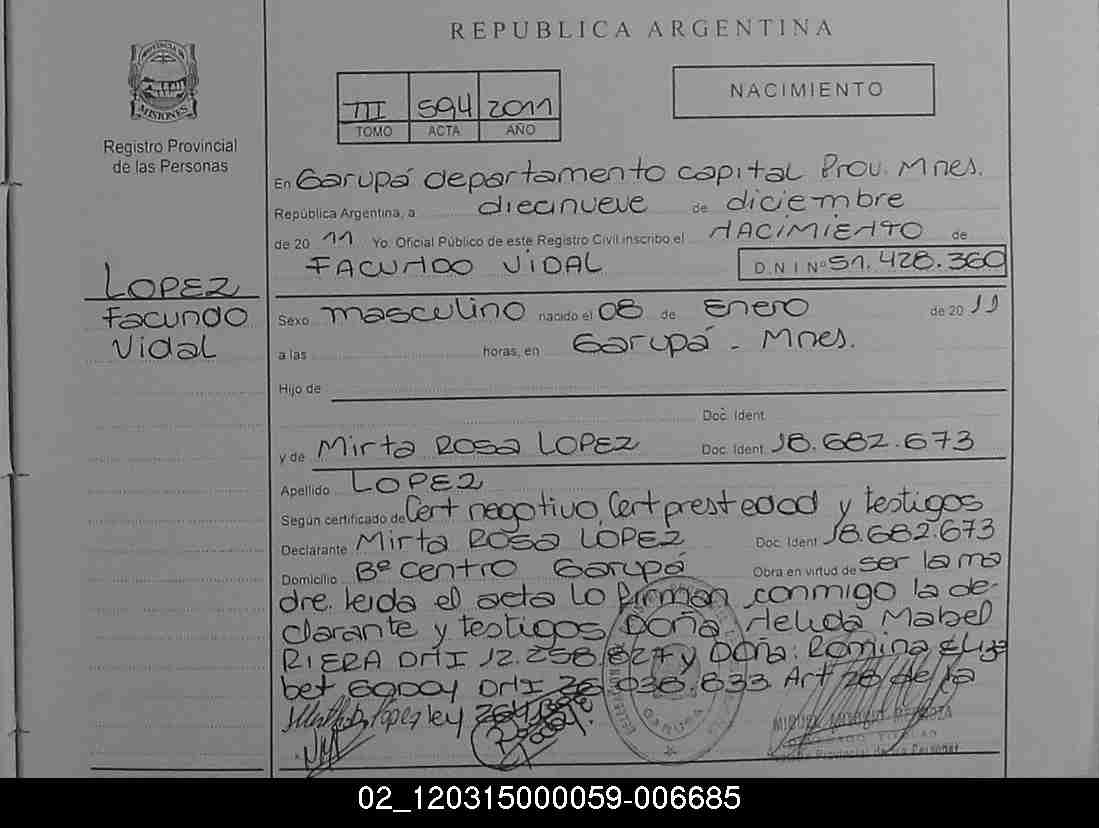 REPUBLICA ARGENTINA
PROVINCIA DE
MISIONES
Registro Provincial
de las Personas
III 594 2011
TOMO ACTA AÑO
NACIMIENTO
En Garupá departamento capital Prov. Mnes.
República Argentina, a diecinueve de diciembre
de 20 11 Yo. Oficial Público de este Registro Civil inscribo el NACIMIENTO de
FACUNDO VIDAL D.N.I Nº 51.428.360
LOPEZ
Facundo
Vidal
Sexo masculino nacido el 08 de Enero de 20 11
a las horas, en Garupá - Mnes.
Hijo de
Doc. Ident
y de Mirta ROSA LOPEZ Doc. Ident. 18.682.673
Apellido LOPEZ
Según certificado de Cert negativo, Cert prest edad y testigos
Declarante Mirta ROSA LOPEZ Doc. Ident 18.682.673
Domicilio Bº Centro Garupá Obra en virtud de ser la ma
dre. leida el acta lo firman conmigo la de-
clarante y testigos Doña: Nelida Mabel
RIERA DNI 12.258.827 y Doña: Romina Eliza
bet GODOY DNI 26.038.833 Art 28 de la
ley
GARUPA
02_120315000059-006685